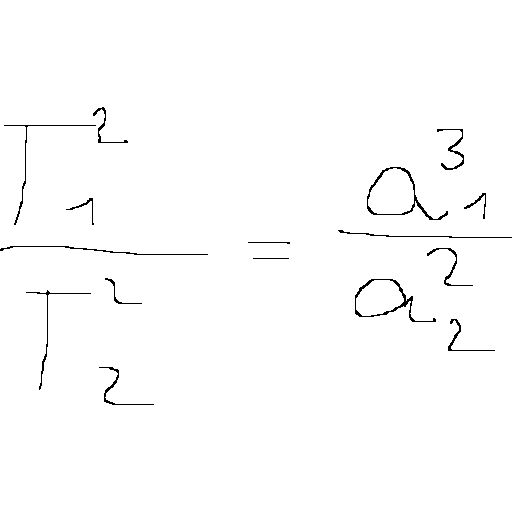 \frac{T_1^2}{T_2^2} = \frac{a_1^3}{a_2^2}